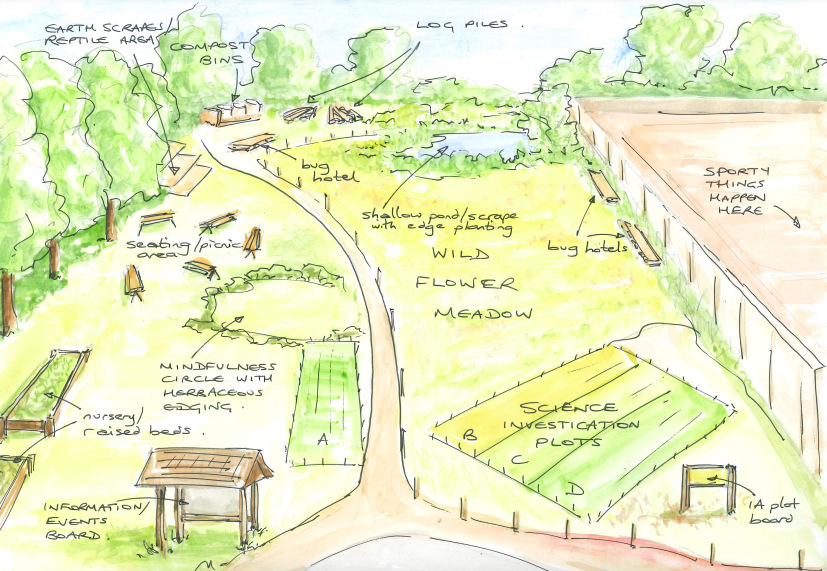 EARTH SCRAPES/
REPTILE AREA
COMPOST
BINS
LOG PILES.
bug
hotel
shallow pond/scrape
with edge planting
SPORTY
THINGS
HAPPEN
HERE
seating/picnic
area
bug hotels
WILD
FLOWER
MEADOW
MINDFULNESS
CIRCLE WITH
HERBACEOUS
EDGING.
nursery/
raised beds.
A
SCIENCE
INVESTIGATION
PLOTS
B
C
D
INFORMATION/
EVENTS
BOARD.
iA plot
board